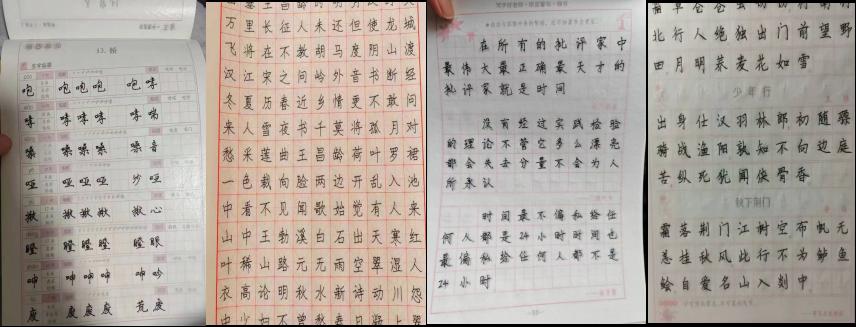 13. 桥
咆 咆咆咆 咆哮
哮 哮哮哮 哮喘
嗓 嗓嗓嗓 嗓音
哑 哑哑哑 沙哑
揪 揪揪揪 揪心
瞪 瞪瞪瞪 瞪眼
呻 呻呻呻 呻吟
废 废废废 荒废
万里长征人未还但使龙城
飞将在不教胡马度阴山渡
汉江宋之问岭外音书断经
冬夏历春近乡情更不敢问
来人雪夜书千莫将孤月对
愁采莲曲王昌龄荷叶罗裙
一色裁向脸两边开乱入池
中看不见闻歌始觉有人来
山中王勃溪白石出天寒红
叶稀山路元无雨空翠湿人
衣高论明秋水新诗动川
在所有的批评家中
最伟大最正确最天才的
批评家就是时间
没有经过实践检验
的理论不管它多么漂亮
都会失去分量不会为人
所承认
时间最不偏私给任
何人都是24小时时间也
最偏私给任何人都不是
24小时
北行人绝独出门前望野
田月明荞麦花如雪
少年行
出身仕汉羽林郎初随骠
骑战渔阳孰知不向边庭
苦纵死犹闻侠骨香
秋下荆门
霜落荆门江树空布帆无
恙挂秋风此行不为鲈鱼
鲙自爱名山入剡中